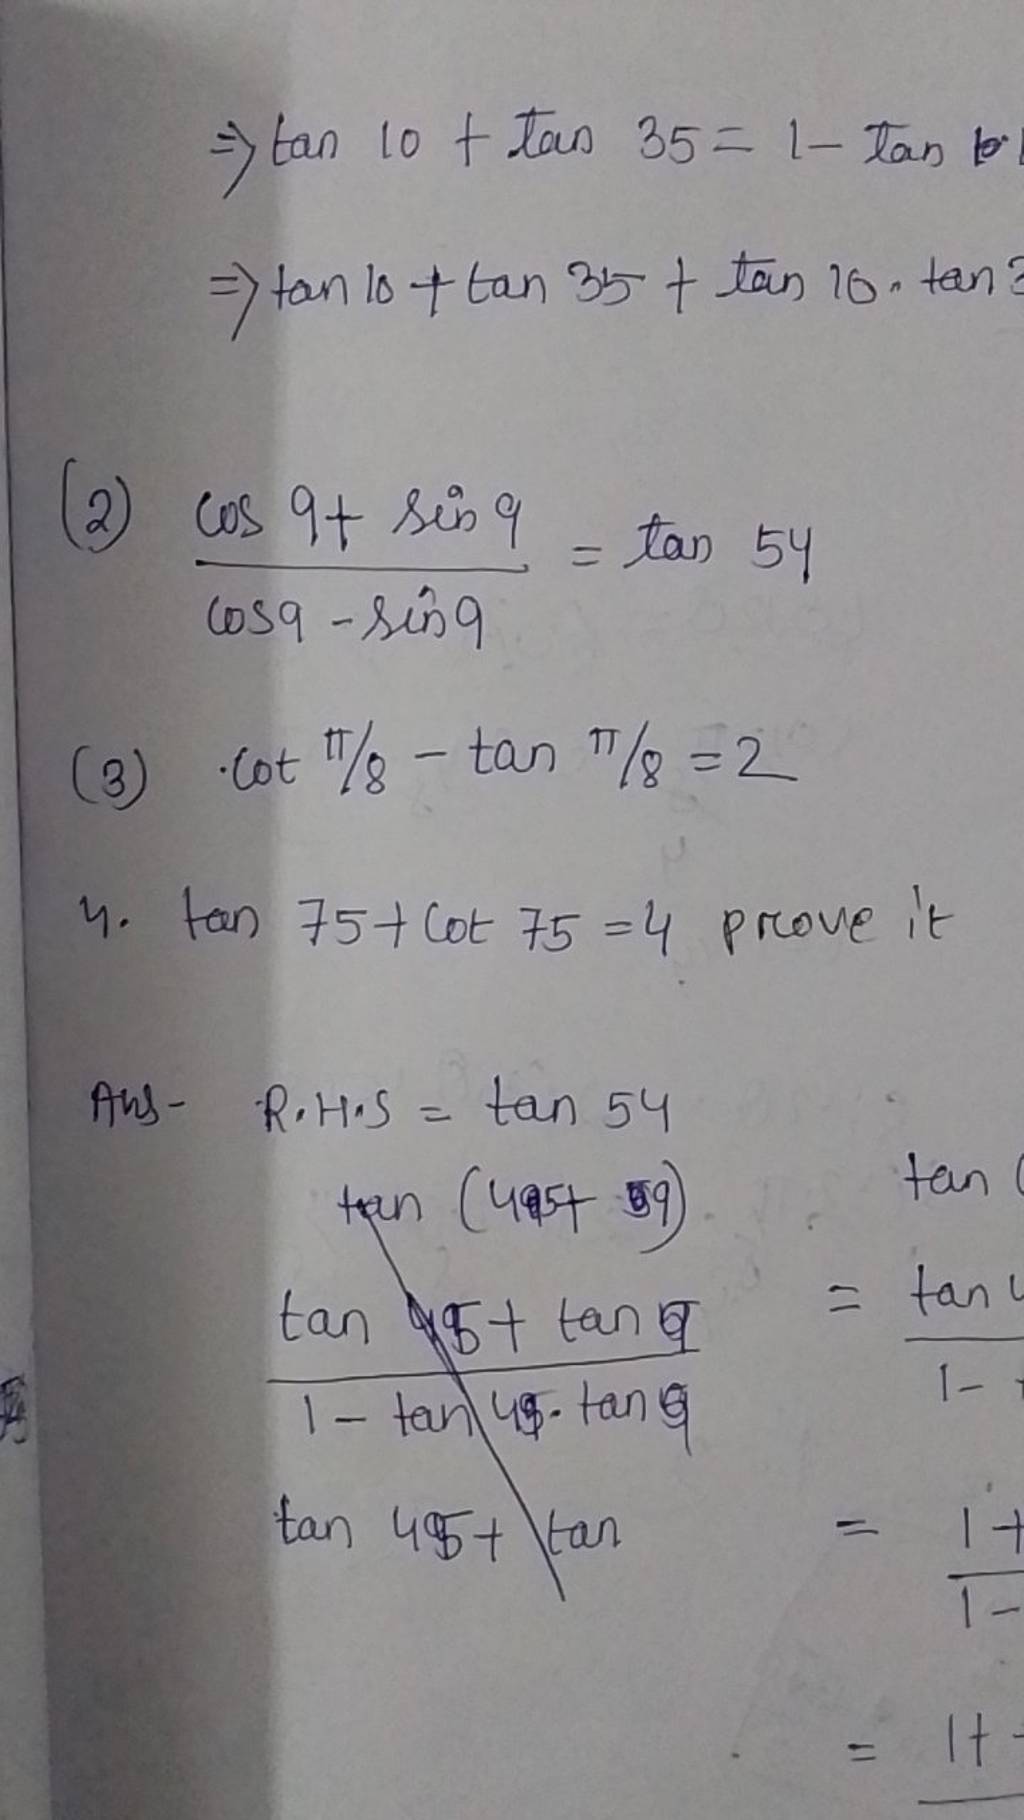 ⇒ tan 10 + tan 35 = 1 - tan 10.
⇒ tan 10 + tan 35 + tan 10. tan 3
(2) cos 9 + sin 9 / cos 9 - sin 9 = tan 54
(3) cot π/8 - tan π/8 = 2
4. tan 75 + cot 75 = 4 prove it
Ans- R.H.S = tan 54
tan (45 + 9) tan (
tan 45 + tan 9 / 1 - tan 45. tan 9 = tan 4 / 1 -
tan 45 + tan = 1 + / 1 -
= 1 +